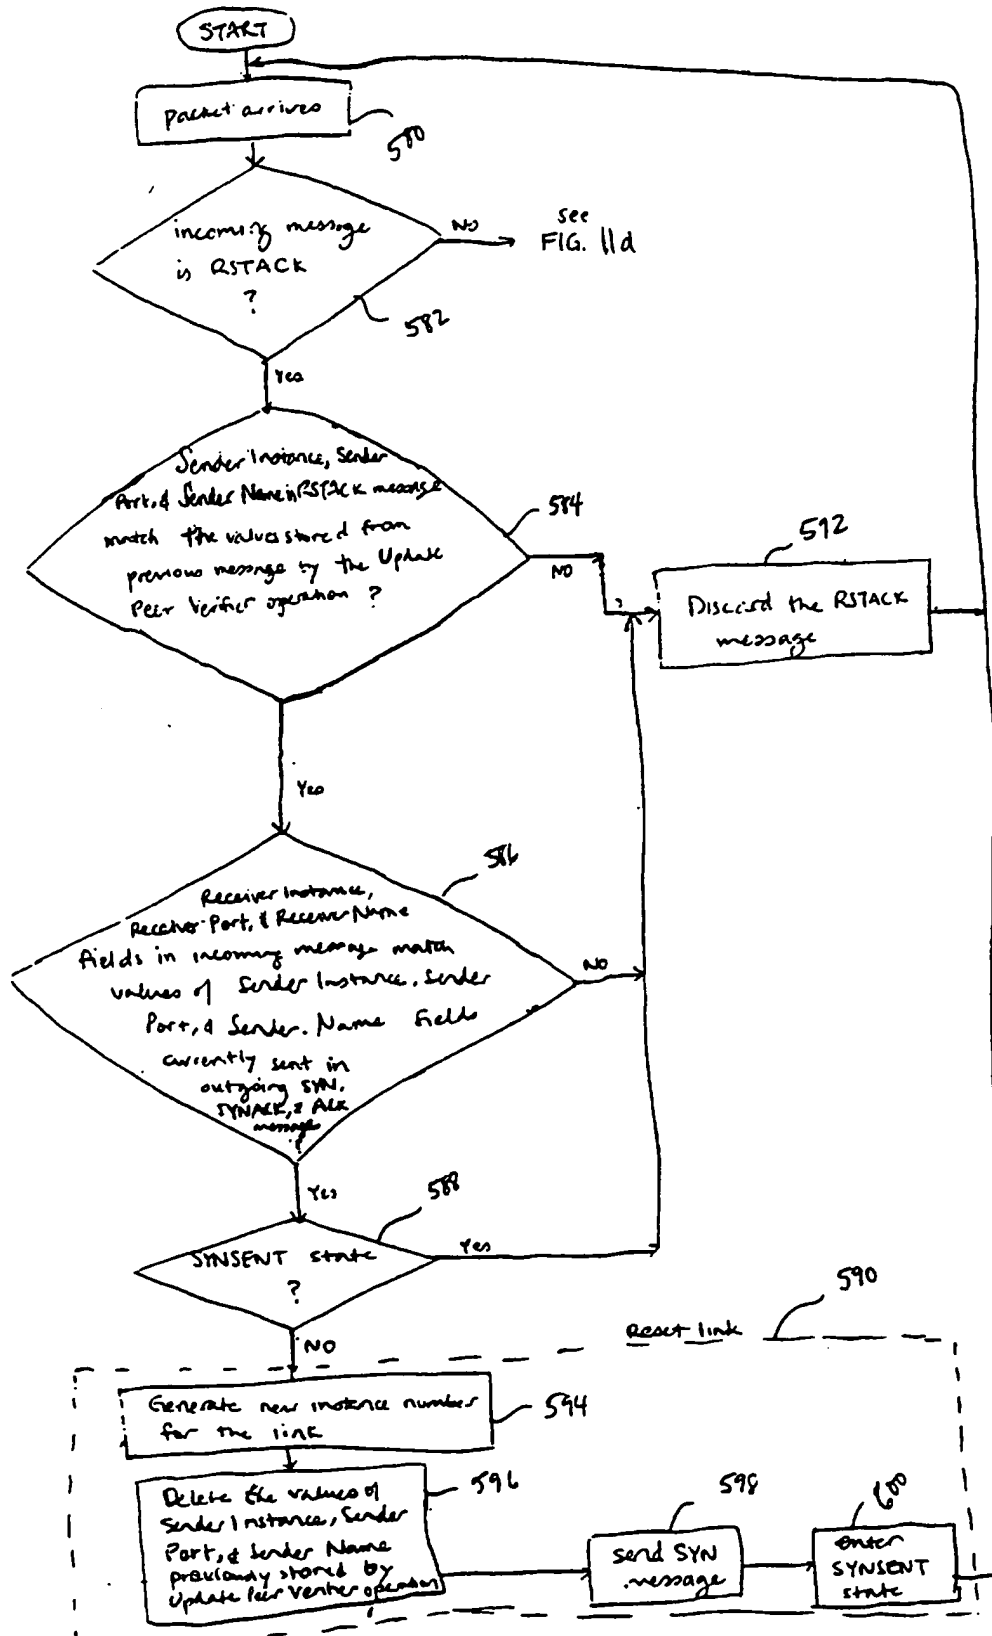 START
packet arrives
580
incoming message
is RSTACK
?
NO
see
FIG. 11d
582
Yes
Sender Instance, Sender
Port, & Sender Name in RSTACK message
match the values stored from
previous message by the Update
Peer Verifier operation ?
584
NO
592
Discard the RSTACK
message
Yes
586
Receiver Instance,
Receiver Port, & Receiver Name
fields in incoming message match
values of Sender Instance, Sender
Port, & Sender Name fields
currently sent in
outgoing SYN,
SYNACK, & ACK
messages
?
NO
Yes
588
SYNSENT state
?
Yes
NO
Reset link
590
Generate new instance number
for the link
594
Delete the values of
Sender Instance, Sender
Port, & Sender Name
previously stored by
Update Peer Verifier operation
596
598
send SYN
message
600
enter
SYNSENT
state